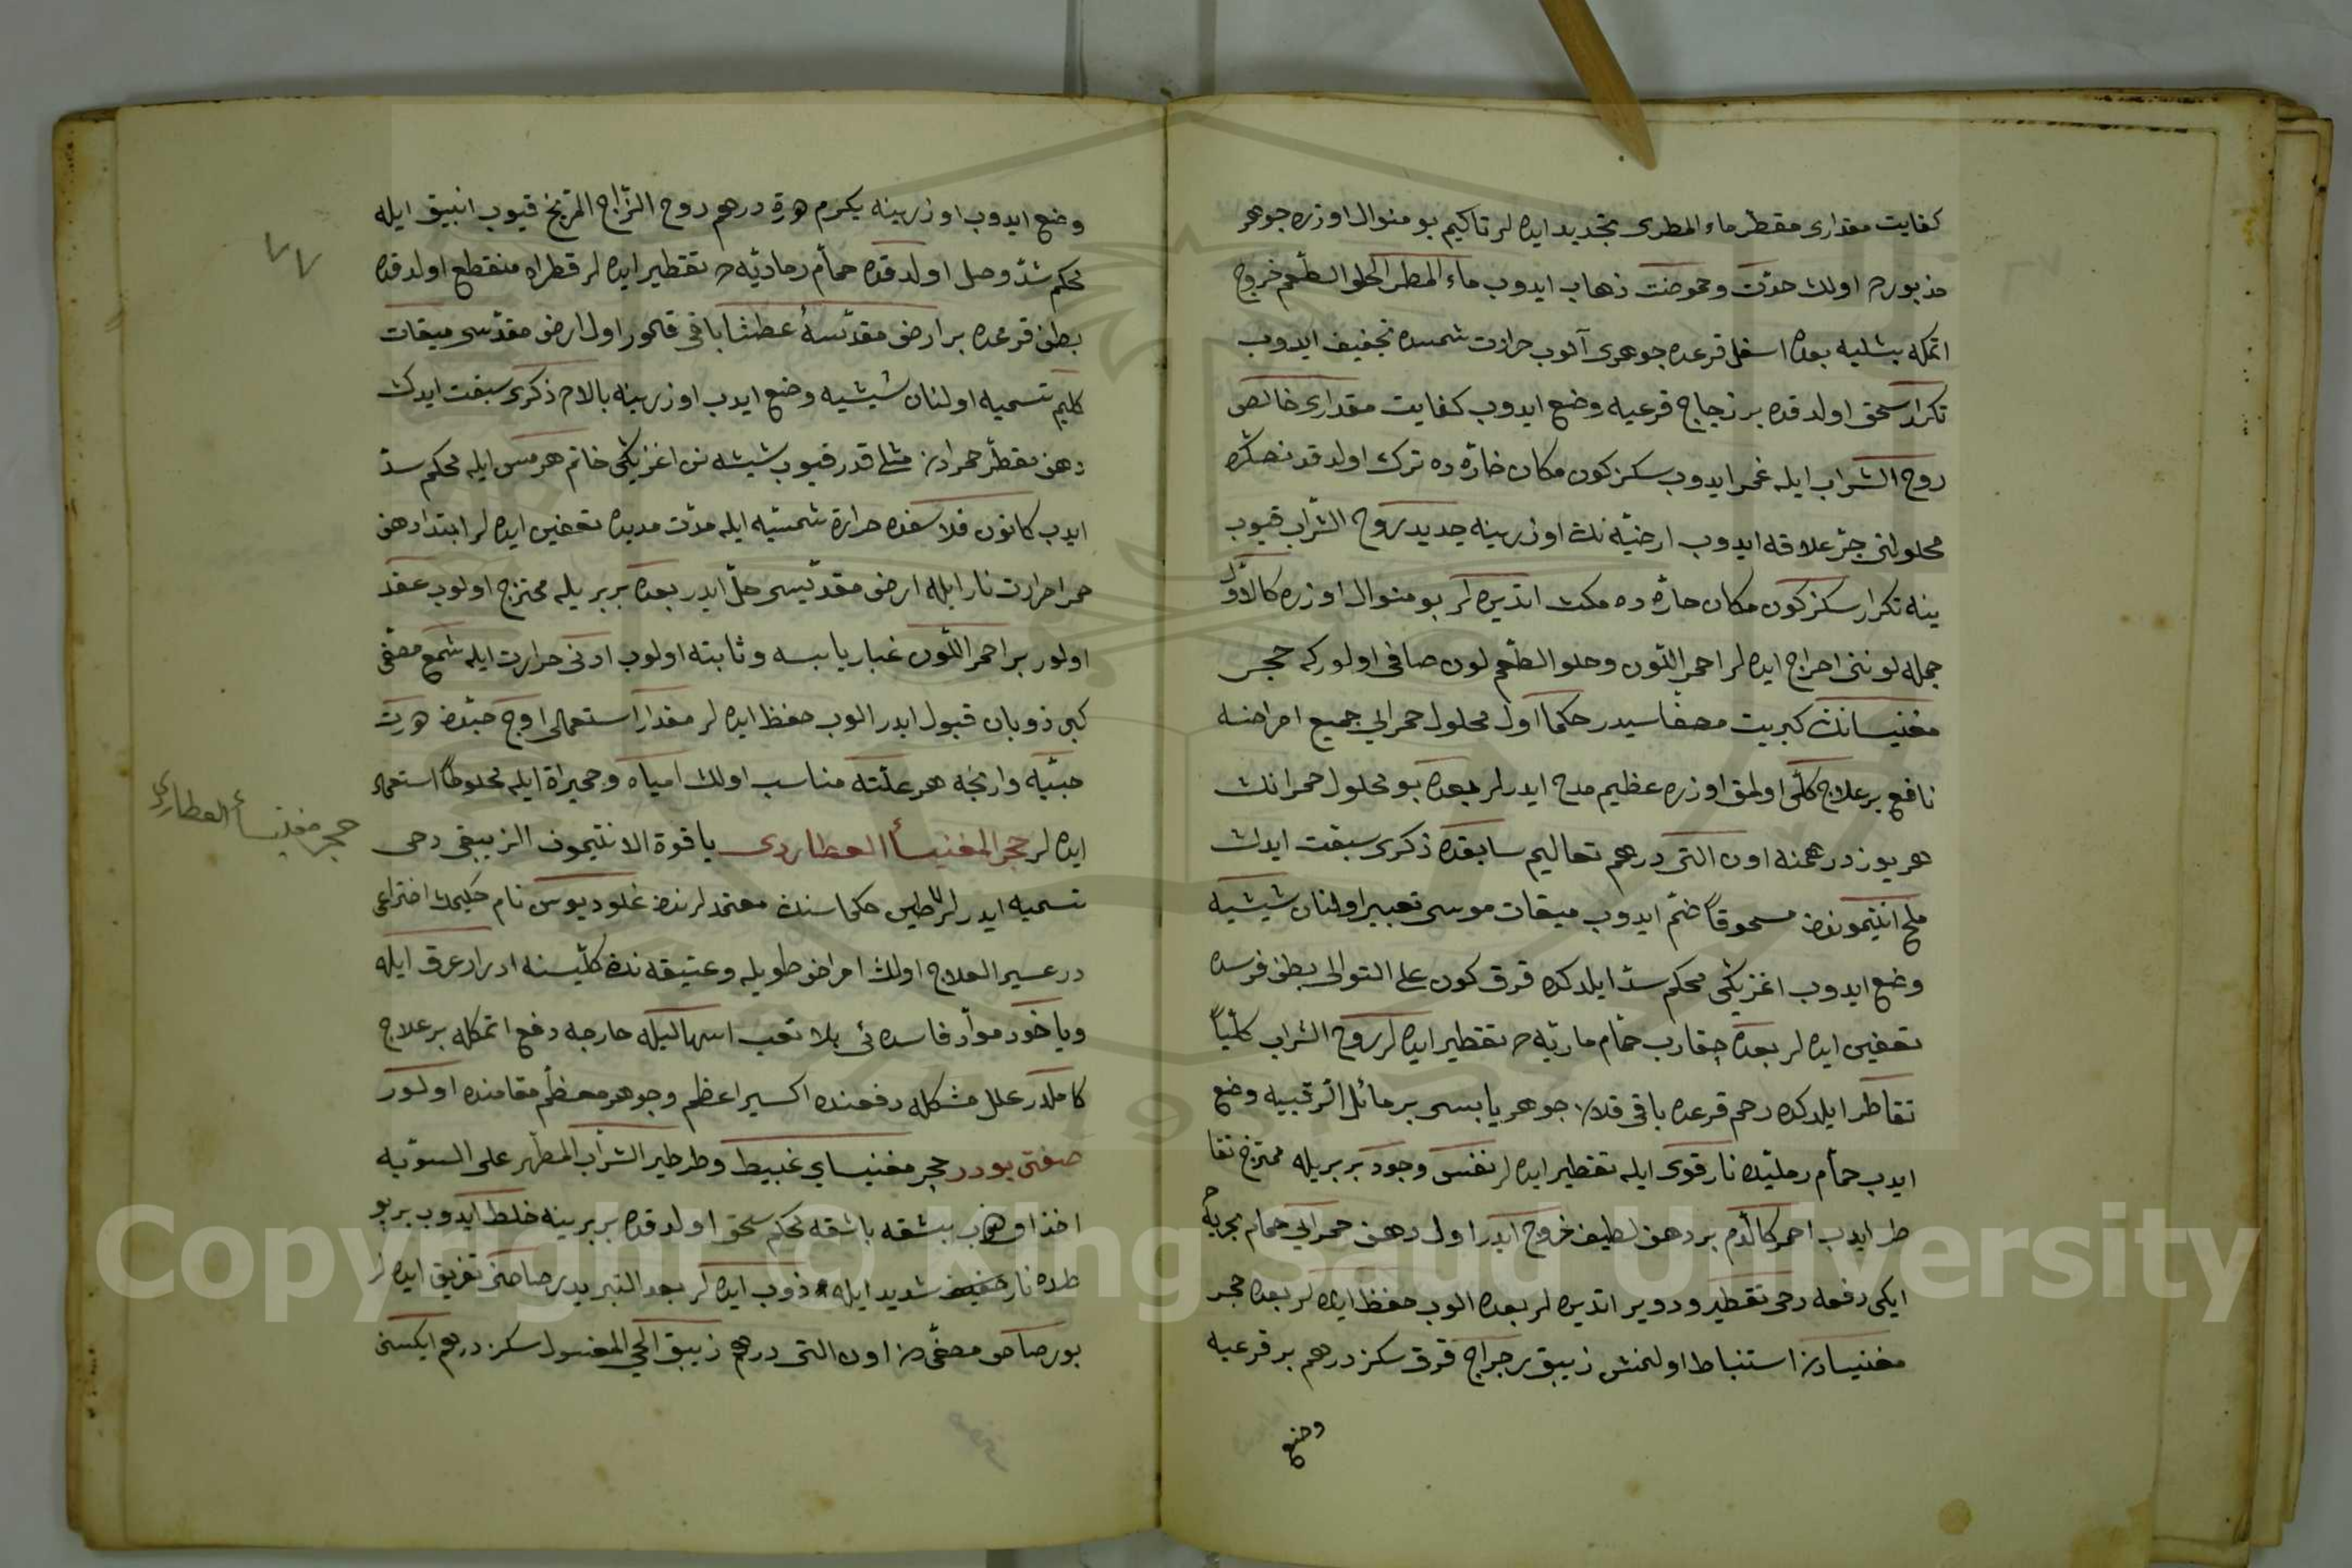 كفايت مقدارى مقطر ماء المطرى تجديد ايده لر تاكيم بو منوال اوزره جوهر
مذبورده اولان حدّت وحموضت ذهاب ايدوب ماء المطر الحلو الطعم خروج
اتمكه بشليه بعده اسفل قرعده جوهرى آلوب حرارت شمسده تجفيف ايدوب
تكرار سحق اولدقده بر زجاج قرعيه وضع ايدوب كفايت مقدارى خالص
روح الشراب ايله غمر ايدوب سكز كون مكان حارّه ده ترك اولدقدنصكره
محلولنى جرّ علاقه ايدوب ارضيّه نك اوزرينه جديد روح الشراب قيوب
ينه تكرار سكز كون مكان حارّه ده مكث اتديره لر بو منوال اوزره كالاوّل
جمله لوننى احراج ايده لر احمر اللّون وحلو الطّعم لون صافى اولور كه حجر
مغنيسانك كبريت مصفاسيدر حكما اول محلول حمرايى جميع امراضه
نافع بر علاج كلّى اولمق اوزره عظيم مدح ايدرلر بعده بو محلول حمرانك
هر يوز درهمنه اون التى درهم تعاليم سابقده ذكرى سبقت ايدن
ملح انتيموندن مسحوقاً ضمّ ايدوب ميقات موسى تعبير اولنان شيشيه
وضع ايدوب اغزيكى محكم سدّ ايلدكده قرق كون على التوالى بطن فرسده
تعفين ايده لر بعده حمّام ماريّه ده تقطير ايده لر روح الشراب كلّياً
تقاطر ايلدكده رحم قرعده باقى قلان جوهر يابسى بر مائل الرقبيه وضع
ايدب حمام رمليّده نار قوى ايله تقطير ايده لر نفس وجود بر بريله ممتزج تقا
طر ايدب احمر كالدّم بر دهن لطيف خروج ايدر اول دهن حمرايى حمام بحريّه ده
ايكى دفعه دخى تقطير ودوير اتديره لر بعده الوب حفظ ايده لر بعده حجر
مغنيسادن استنباط اولنمش زيبق رجراج قرق سكز درهم بر قرعيه
وضع
٧٧
وضع ايدوب اوزرينه يكرم درهم روح الزّاج المرّيخ قيوب انبيق ايله
محكم شدّ وصل اولدقده حمّام رماديّه ده تقطير ايده لر قطراه منقطع اولدقده
بطن قرعده بر ارض مقدّسهٔ عطشا باقى قلور اول ارض مقدّسى ميقات
كليم تسميه اولنان شيشيه وضع ايدب اوزرينه بالاده ذكرى سبقت ايدن
دهن مقطّر حمرادن مثلى قدر قيوب شيشه نن اغزيكى خاتم هرمس ايله محكم سدّ
ايدب كانون فلاسفده حرارة شمسيّه ايله مدّت مديده تعفين ايده لر ابتدا دهن
حمرا حرارت نار ايله ارض مقدّسى حلّ ايدر بعده بر بريله ممتزج اولوب عقد
اولور بر احمر اللّون غبار يابسه وثابته اولوب ادنى حرارت ايله شمع مصفّى
كبى ذوبان قبول ايدر الوب حفظ ايده لر مقدار استعمالى اوچ حبّدن درت
حبّيه وارنجه هر علّته مناسب اولان امياه وخميراة ايله مخلوطاً استعمال
ايده لر حجر المغنيسأ العطاردى ياقوة الانتيمون الزيبقى دخى
تسميه ايدرلر لاطين حكماسندن معتمدلرندن غلوديوس نام حكيمك اختراعى
در عسير العلاج اولان امراض طويله وعتيقه ندن كلّيسنه ادرار عرق ايله
وياخود موادّ فاسده ئى بلا تعب اسهاليله خارجه دفع اتمكله بر علاج
كاملدر علل مشكله دفعنده اكسير اعظم وجوهر معظّم مقامنده اولور
صفتى بودر حجر مغنيساى غبيط وطرطير الشراب المطهّر على السويه
اخذ اولنوب بشقه باشقه محكم سحق اولدقده بر برينه خلط ايدوب بر بو
طده نار شديد ايله ذوب ايده لر بعد التبريد رصاصنى تفريق ايده لر
بو رصاص مصفّى دن اون التى درهم زيبق الحى المغسول سكز درهم ايكسنى
حجر مغنيسأ العطاردى
Copyright © King Saud University